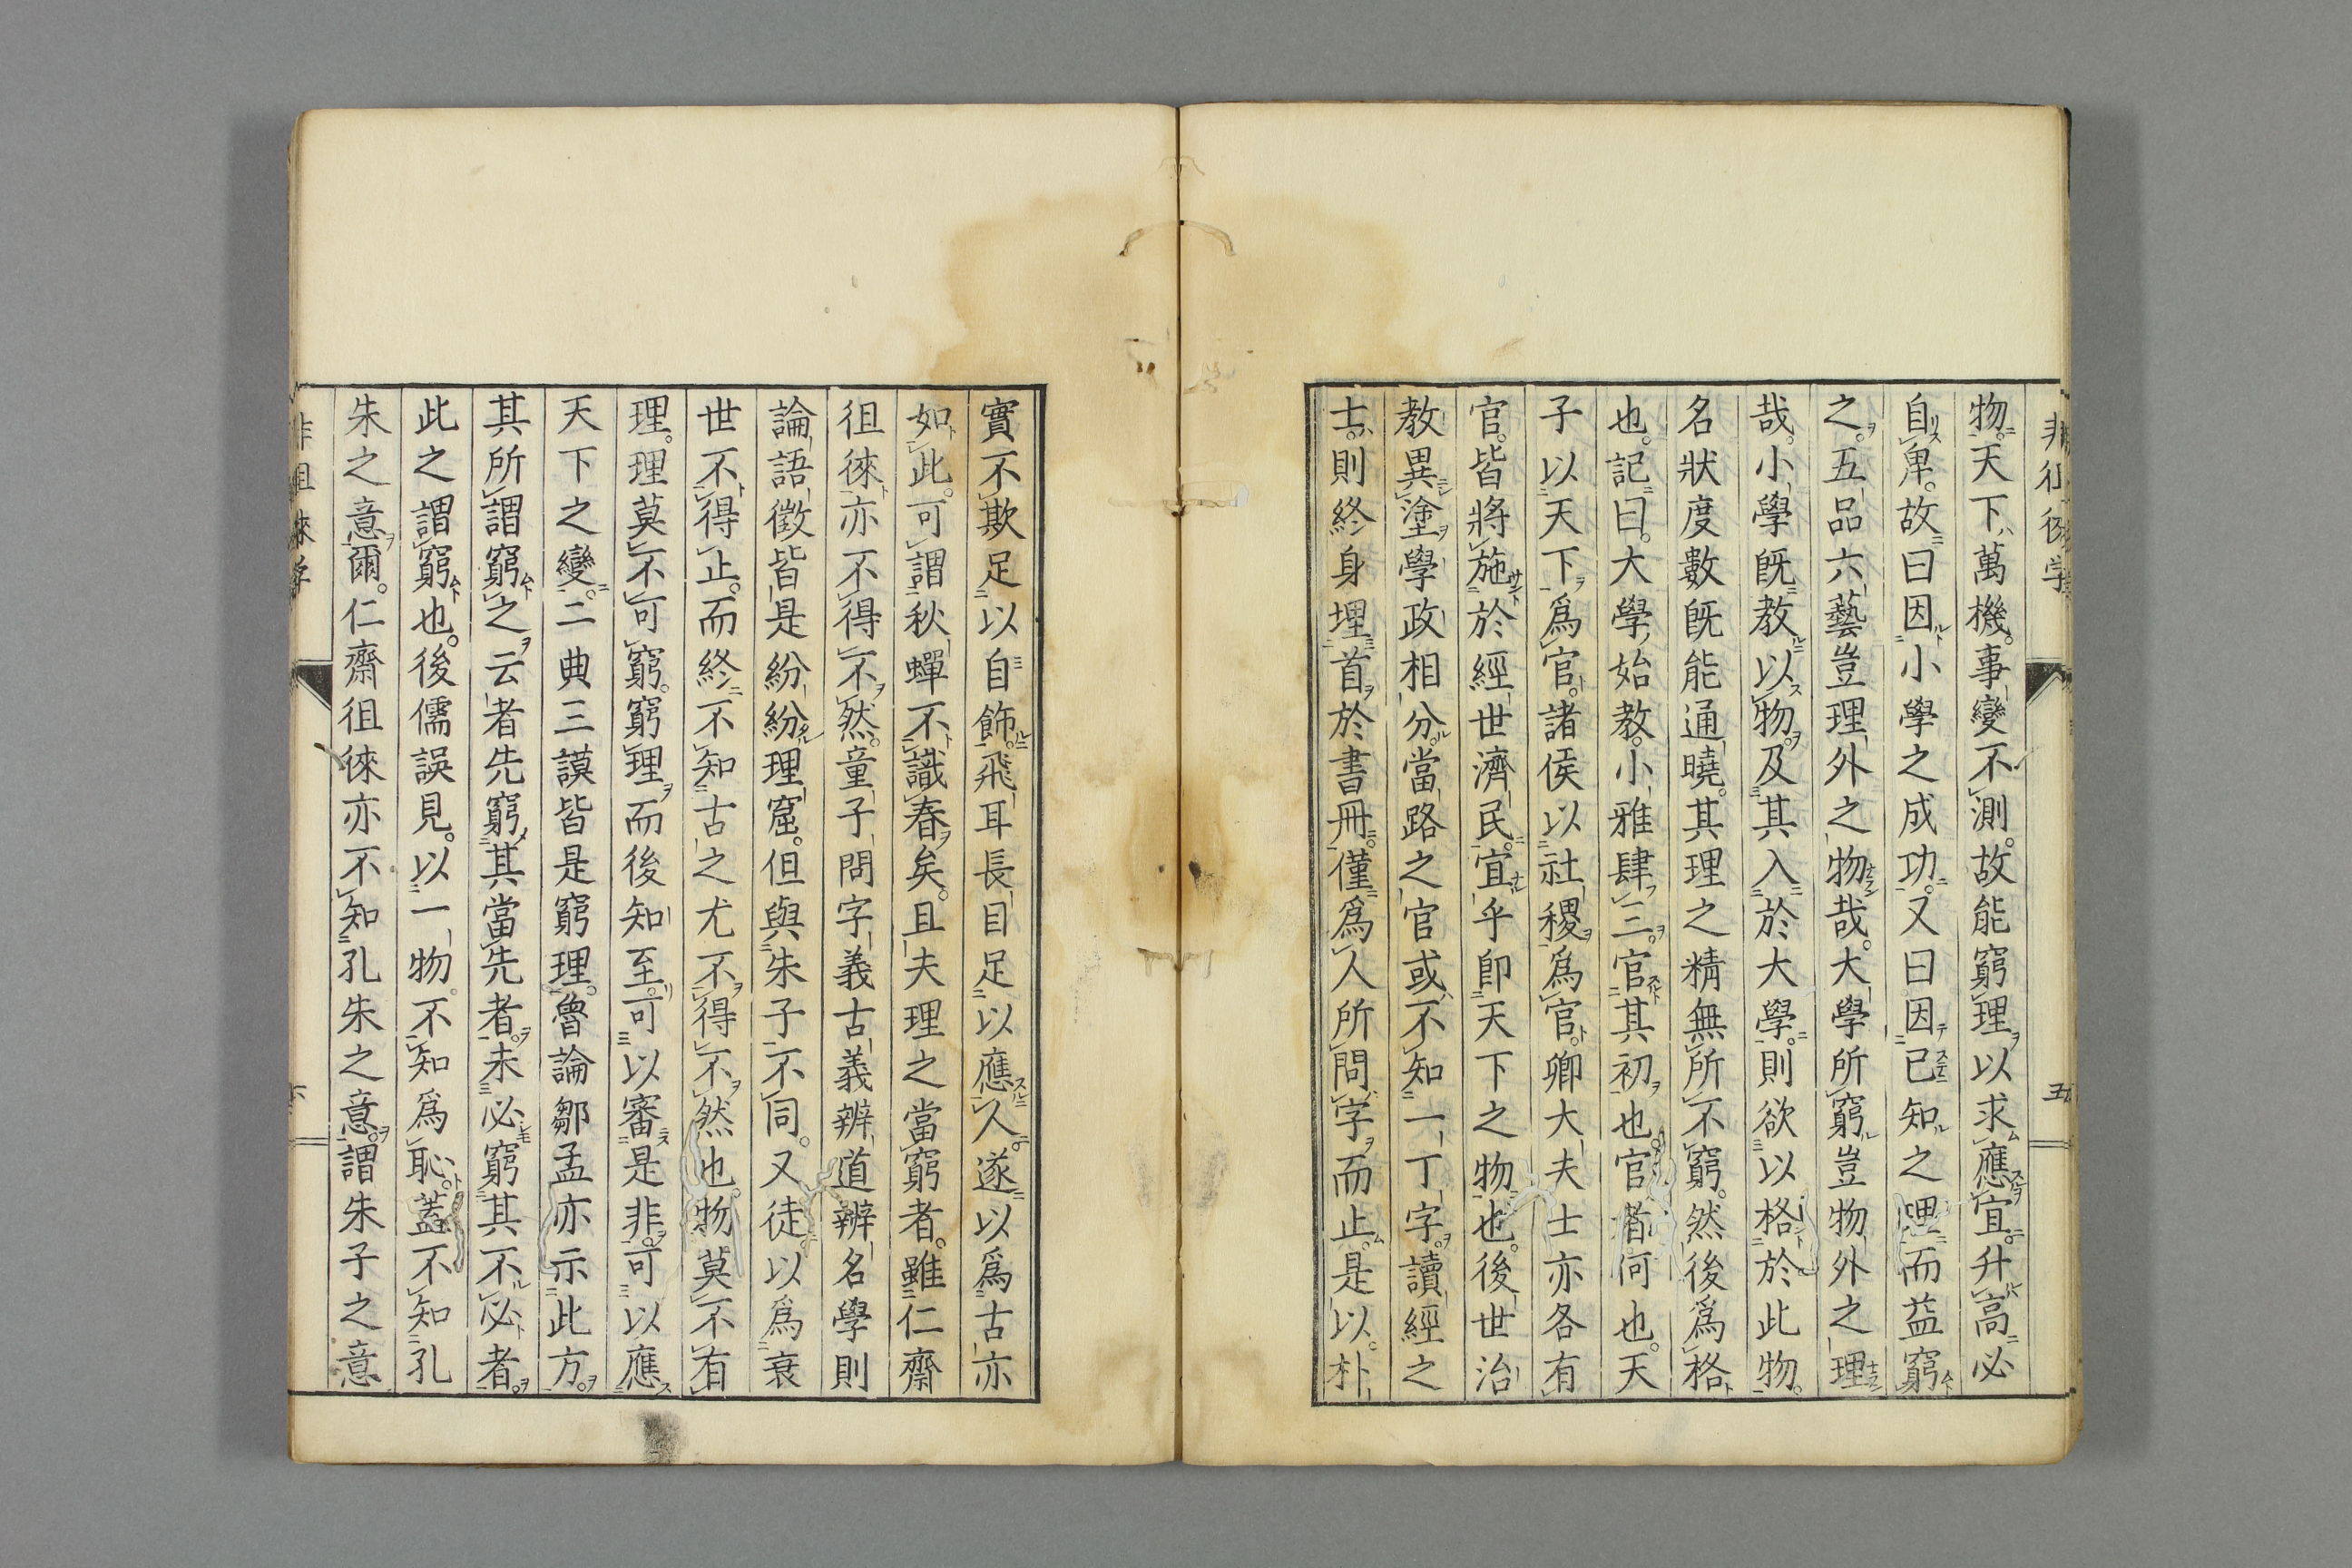 物天下萬機事變不測故能窮理以求應宜升高必
自卑故曰因小學之成功又曰因已知之理而益窮
之五品六藝豈理外之物哉大學所窮豈物外之理
哉小學既教以物及其入於大學則欲以格於此物
名狀度數既能通曉其理之精無所不窮然後爲格
也記曰大學始教小雅肆三官其初也官者何也天
子以天下爲官諸侯以社稷爲官卿大夫士亦各有
官皆將施於經世濟民宜乎卽天下之物也後世治
教異塗學政相分當路之官或不知一丁字讀經之
士則終身埋首於書冊僅爲人所問字而止是以朴
五
實不欺足以自飾飛耳長目足以應人遂以爲古亦
如此可謂秋蟬不識春矣且夫理之當窮者雖仁齋
徂徠亦不得不然童子問字義古義辨道辨名學則
論語徵皆是紛紛理窟但與朱子不同又徒以爲衰
世不得止而終不知古之尤不得不然也物莫不有
理理莫不可窮窮理而後知至可以審是非可以應
天下之變二典三謨皆是窮理魯論鄒孟亦示此方
其所謂窮之云者先窮其當先者未必窮其不必者
此之謂窮也後儒誤見以一物不知爲恥蓋不知孔
朱之意爾仁齋徂徠亦不知孔朱之意謂朱子之意
非徂徠学
六